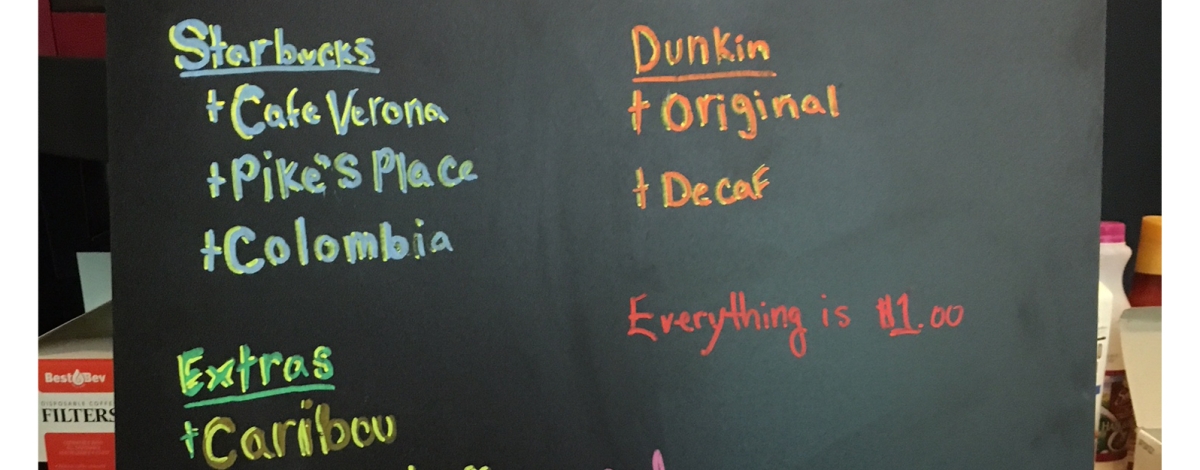 Starbucks
+ Cafe Verona
+ Pike's Place
+ Colombia
Extras
+ Caribou
Dunkin
+ Original
+ Decaf
Everything is $1.00
Best Bev
DISPOSABLE COFFEE
FILTERS